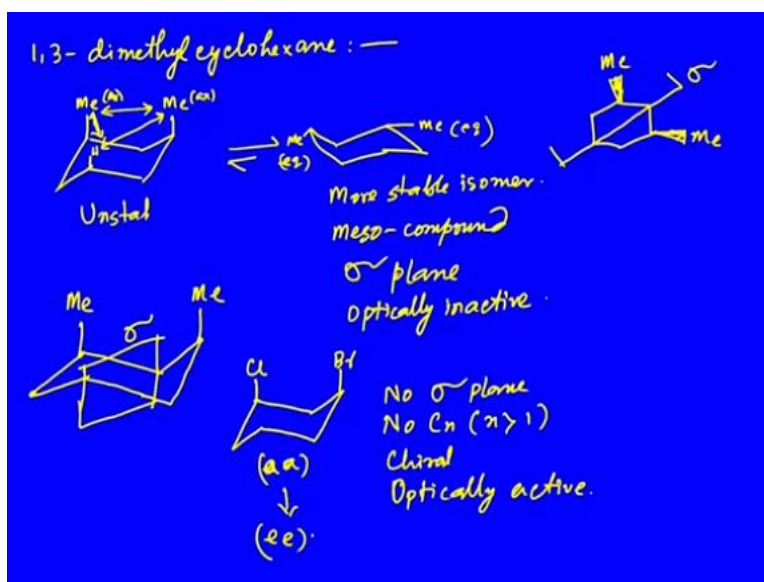 1,3- dimethyl cyclohexane : —
Me (ax) Me (ax)
H
Unstal
Me (eq) Me (eq)
More stable isomer.
Meso-compound
σ plane
Optically inactive.
Me
σ
Me
Me Me
σ
Cl Br
(aa)
(ee).
No σ plane
No Cn (n>1)
Chiral
Optically active.